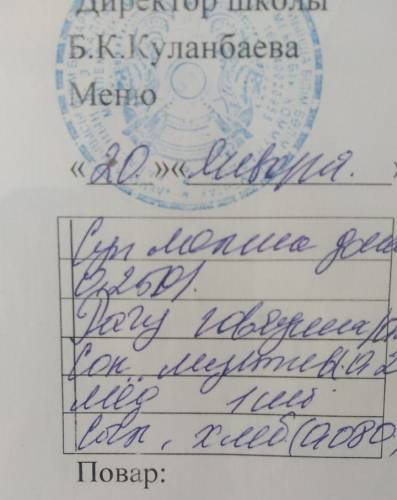 Директор школы
Б.К.Куланбаева
Меню
«20.»«Января.»
Суп лапша дом
0,250).
Рагу говядина
Сок мульти
мёд 1 шт
Сыр, хлеб (0,080,
Повар: